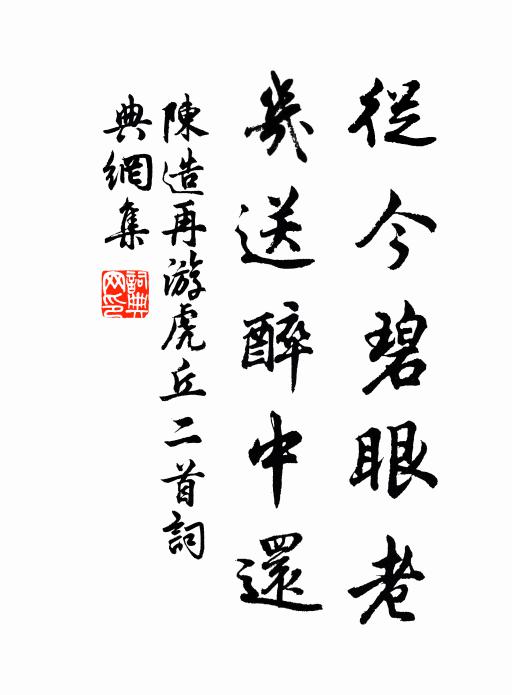 從今碧眼老
幾送醉中還
陳造再游虎丘二首詞
典網集
詞典網印